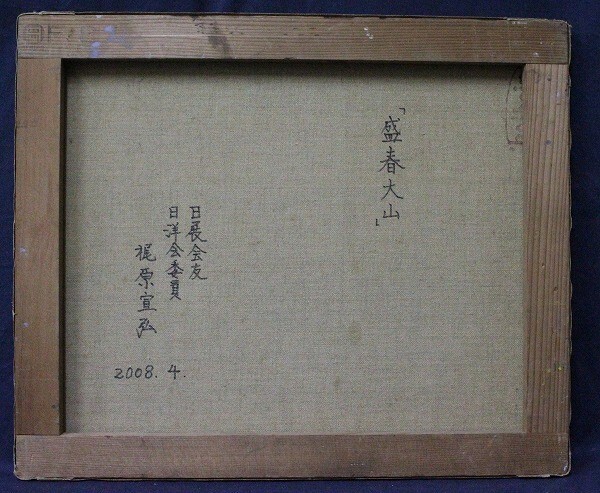 「盛春大山」
日展会友
日洋会委員
梶原宣弘
2008. 4.